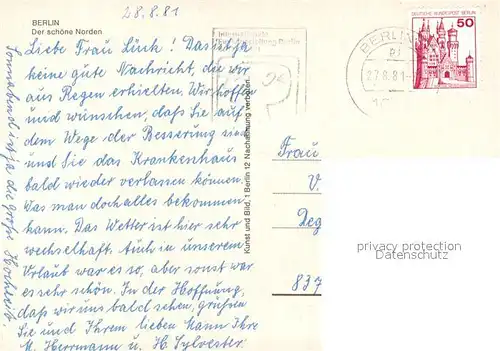 28.8.81
BERLIN
Der schöne Norden
Liebe Frau Lück! Das ist ja
keine gute Nachricht, die wir
aus Regen erhielten. Wir hoffen
und wünschen, daß Sie auf
dem Wege der Besserung sind
und Sie das Krankenhaus
bald wieder verlassen können.
Was man doch alles bekommen
kann. Das Wetter ist hier sehr
wechselhaft. Auch in unserem
Urlaub war es so, aber sonst war
es sehr schön. In der Hoffnung,
daß wir uns bald sehen, grüßen
Sie und Ihrem lieben Mann Ihre
M. Herrmann u. H. Sylvester.
Sonnabend ist ja die große Hochzeit.
Kunst und Bild, 1 Berlin 12 Nachahmung verboten.
DEUTSCHE BUNDESPOST BERLIN
50
BERLIN
27.8.81
Frau
V.
Deg
837
privacy protection
Datenschutz